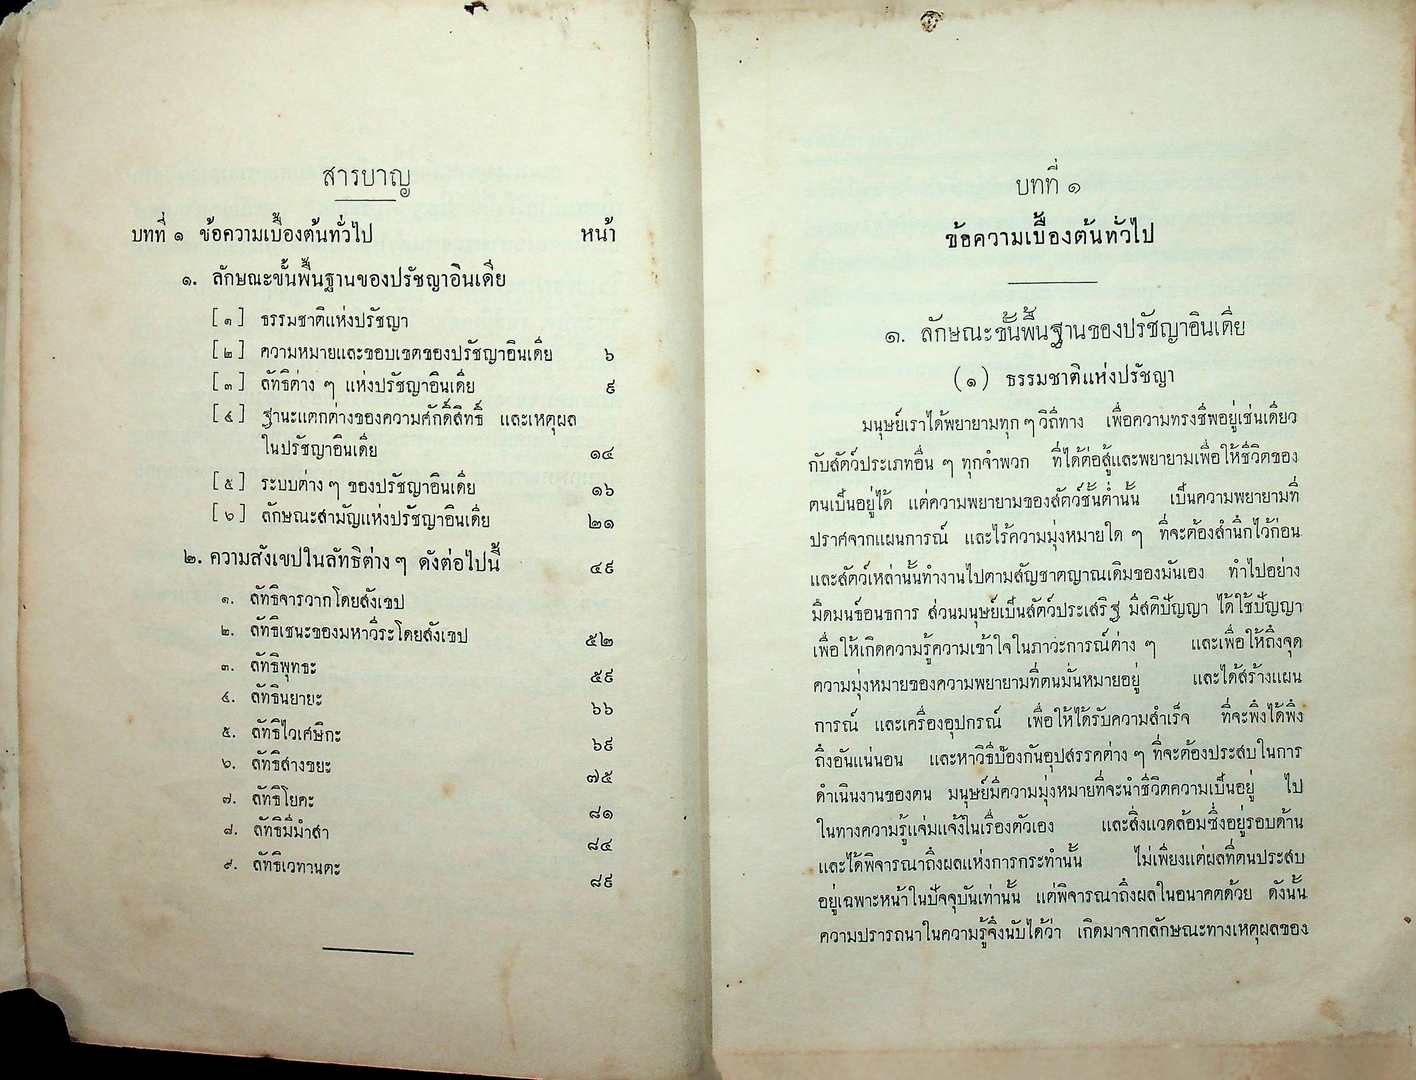 สารบาญ
บทที่ ๑ ข้อความเบื้องต้นทั่วไป หน้า
๑. ลักษณะขั้นพื้นฐานของปรัชญาอินเดีย
[๑] ธรรมชาติแห่งปรัชญา
[๒] ความหมายและขอบเขตของปรัชญาอินเดีย ๖
[๓] ลัทธิต่าง ๆ แห่งปรัชญาอินเดีย ๙
[๔] ฐานะแตกต่างของความศักดิ์สิทธิ์ และเหตุผล
ในปรัชญาอินเดีย ๑๔
[๕] ระบบต่าง ๆ ของปรัชญาอินเดีย ๑๖
[๖] ลักษณะสามัญแห่งปรัชญาอินเดีย ๒๑
๒. ความสังเขปในลัทธิต่าง ๆ ดังต่อไปนี้ ๔๙
๑. ลัทธิจารวากโดยสังเขป
๒. ลัทธิเชนะของมหาวีระโดยสังเขป ๕๒
๓. ลัทธิพุทธะ ๕๙
๔. ลัทธินยายะ ๖๖
๕. ลัทธิไวเศษิกะ ๖๙
๖. ลัทธิสางขยะ ๗๕
๗. ลัทธิโยคะ ๘๑
๘. ลัทธิมีมำสา ๘๔
๙. ลัทธิเวทานตะ ๘๙
บทที่ ๑
ข้อความเบื้องต้นทั่วไป
๑. ลักษณะขั้นพื้นฐานของปรัชญาอินเดีย
(๑) ธรรมชาติแห่งปรัชญา
มนุษย์เราได้พยายามทุก ๆ วิถีทาง เพื่อความทรงชีพอยู่เช่นเดียว
กับสัตว์ประเภทอื่น ๆ ทุกจำพวก ที่ได้ต่อสู้และพยายามเพื่อให้ชีวิตของ
ตนเป็นอยู่ได้ แต่ความพยายามของสัตว์ชั้นต่ำนั้น เป็นความพยายามที่
ปราศจากแผนการณ์ และไร้ความมุ่งหมายใด ๆ ที่จะต้องสำนึกไว้ก่อน
และสัตว์เหล่านั้นทำงานไปตามสัญชาตญาณเดิมของมันเอง ทำไปอย่าง
มืดมนธ์อนธการ ส่วนมนุษย์เป็นสัตว์ประเสริฐ มีสติปัญญา ได้ใช้ปัญญา
เพื่อให้เกิดความรู้ความเข้าใจในภาวะการณ์ต่าง ๆ และเพื่อให้ถึงจุด
ความมุ่งหมายของความพยายามที่ตนมั่นหมายอยู่ และได้สร้างแผน
การณ์ และเครื่องอุปกรณ์ เพื่อให้ได้รับความสำเร็จ ที่จะพึงได้พึง
ถึงอันแน่นอน และหาวิธีป้องกันอุปสรรคต่าง ๆ ที่จะต้องประสบในการ
ดำเนินงานของตน มนุษย์มีความมุ่งหมายที่จะนำชีวิตความเป็นอยู่ ไป
ในทางความรู้แจ่มแจ้งในเรื่องตัวเอง และสิ่งแวดล้อมซึ่งอยู่รอบด้าน
และได้พิจารณาถึงผลแห่งการกระทำนั้น ไม่เพียงแต่ผลที่ตนประสบ
อยู่เฉพาะหน้าในปัจจุบันเท่านั้น แต่พิจารณาถึงผลในอนาคตด้วย ดังนั้น
ความปรารถนาในความรู้จึงนับได้ว่า เกิดมาจากลักษณะทางเหตุผลของ